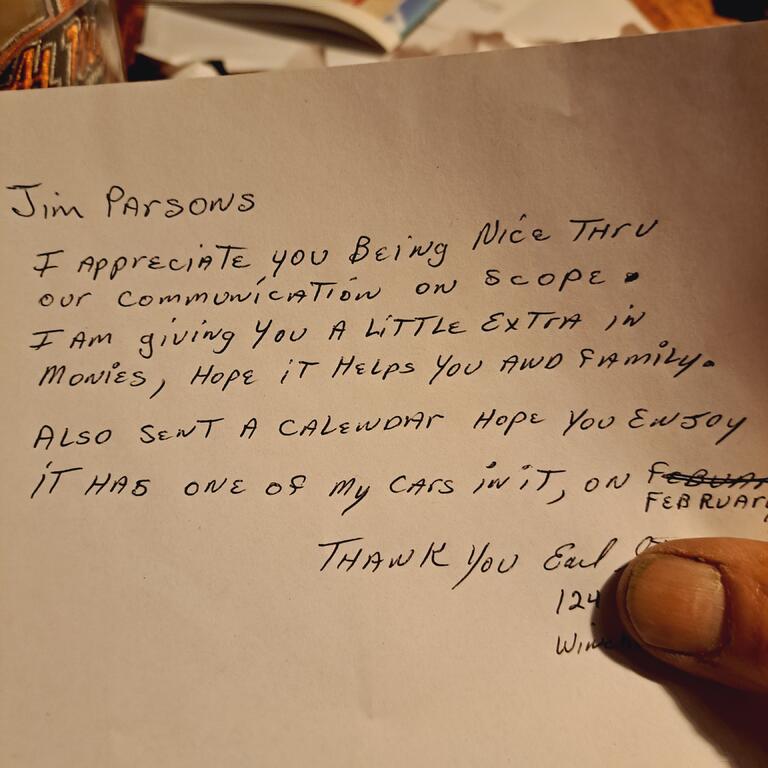 Jim Parsons
I Appreciate you Being Nice Thru
our communication on scope.
I Am giving You A Little Extra in
Monies, Hope it Helps You AND family.
Also Sent A CALENDAR Hope You Enjoy
iT HAS ONE OF My CARS iN iT, ON
FEBRUARY
THANK You Earl
124